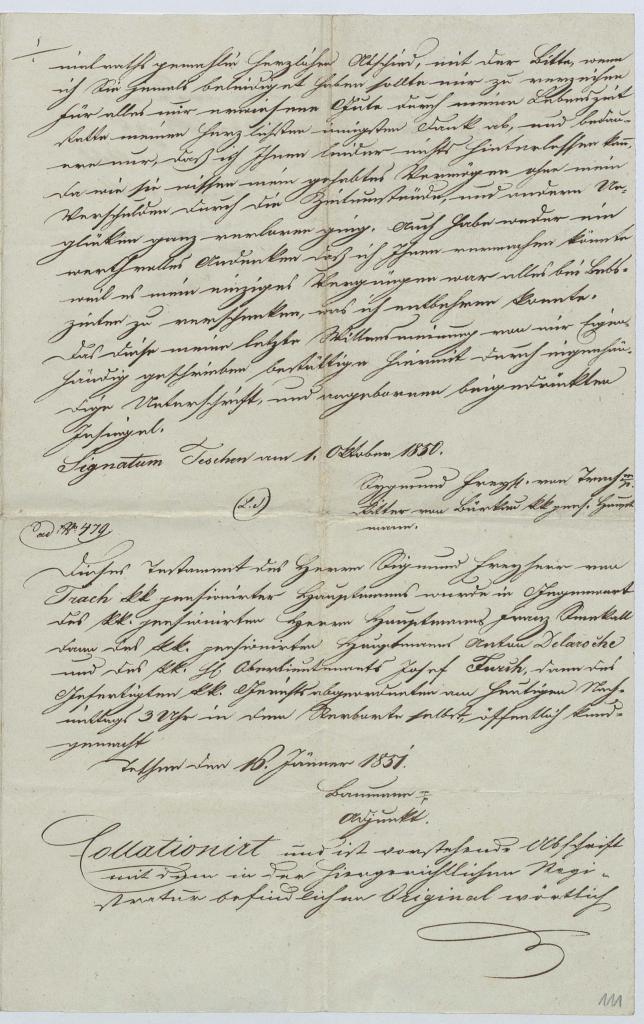 mit der Bitte, wenn
ich Sie jemals beleidiget haben sollte mir zu verzeihen
für alles mir erwiesene Gute durch meine Lebenszeit
statte meinen herzlichsten innigsten Dank ab, und bedau-
ere nur, daß ich Ihnen leider nichts hinterlassen kan,
da wie sie wissen mein gehabtes Vermögen ohne mein
Verschulden durch die Zeitumstände, und andern Un-
glüken ganz verloren ging. Auch habe weder ein
werthvolles Andenken daß ich Ihnen vermachen könnte
weil es mein einziges Vergnügen war alles bei Lebs-
zeiten zu verschenken, was ich entbehren konnte.
Das diese meine letzte Willensmeinung von mir Eigen-
händig geschrieben bestättige hiermit durch eigenhän-
dige Unterschrift, und angebornen beigedrückten
Insiegel.
Signatum Teschen am 1. Oktober 1850.
Sigmund Freyh. von Trach
Ritter von kk pens. Haupt
mann.
(L.S)
ad No 479
Dieses Testament des Herrn Sigmund Freyherr von
Trach kk pensionirter Hauptmanns wurde in Gegenwart
des kk. pensionirten Herrn Hauptmanns Franz
dann des kk. pensionirten Hauptmanns Anton Delaroche
und des kk. Oberlieutenants Josef dann des
Gefertigten kk. Gerichtsabgeordneten am heutigen Nach-
mittags 3 Uhr in dem Sterborte selbst, öffentlich kund-
gemacht
Teschen den 16. Jänner 1851.
Baumann
Adjunkt.
Collationirt und ist vorstehende Abschrift
mit dem in der hiergerichtlichen Regi-
stratur befindlichen Original wörtlich
111